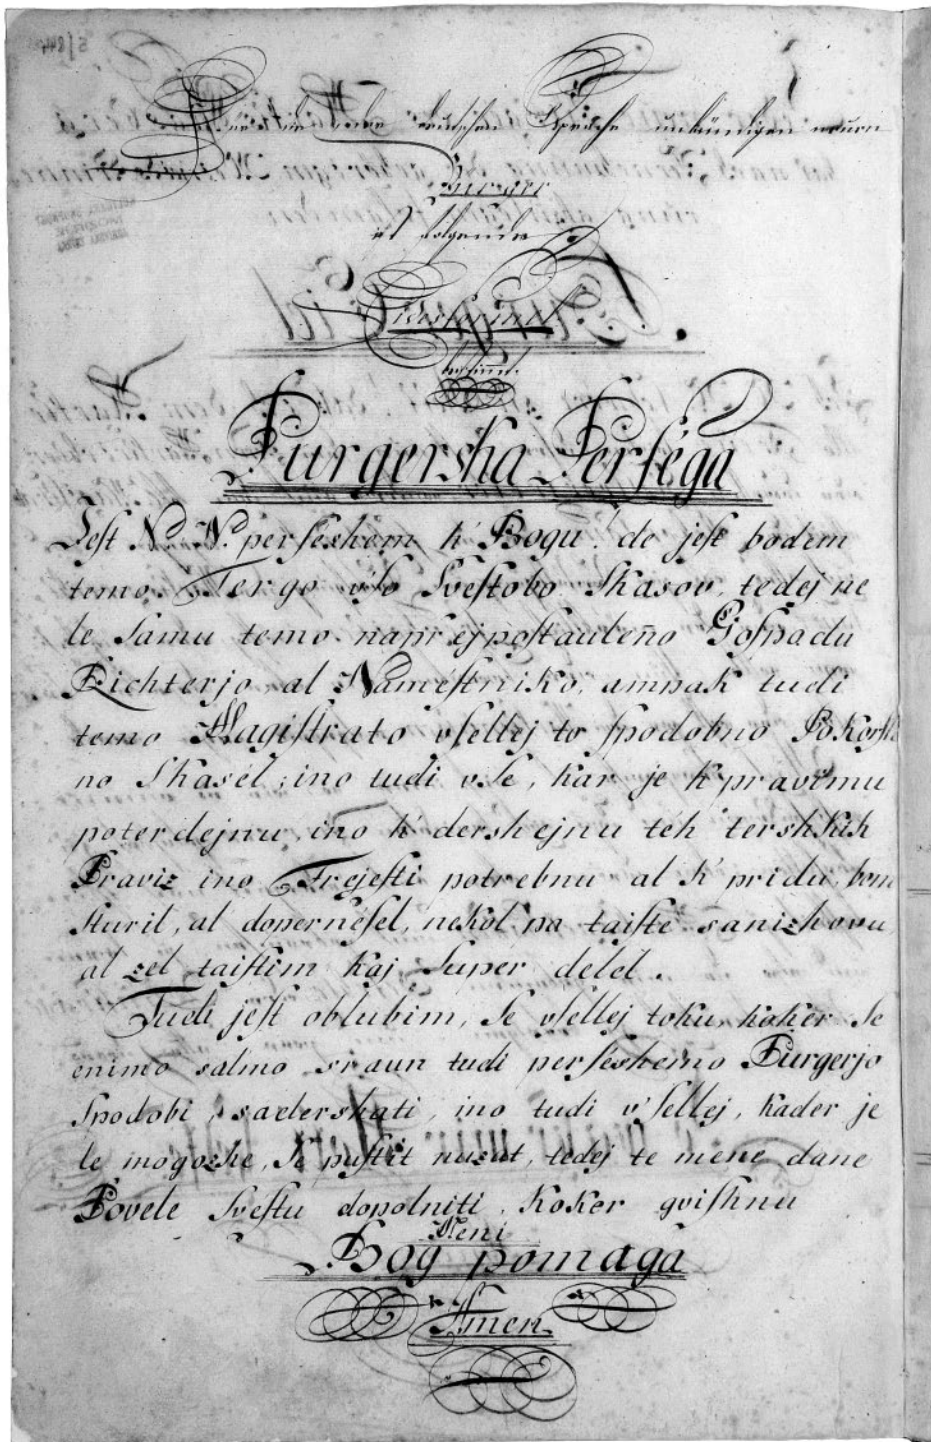 Für die der deutschen Sprache unkündigen neuen
Burger
ist folgende
Eidesformel
bestimmt.
Purgerska Perſéga
Jeſt N. N. perſeshem k' Bogu! de jeſt bodem
temo Tergo vſo Sveſtobo Skasov, tedej ne
le ſamu temo naprejpoſtauleno Goſpadu
Richterjo al Nameſtniko, ampak tudi
temo Magiſtrato vſellej to ſpodobno Pokorſh
no Skasél, ino tudi vſe, kar je k' pravemu
poterdejnu, ino k' dershejnu teh tershkih
Praviz ino Frejeſti potrebnu al k' pridu, bom
ſturil, al doperneſel, nekol pa taiſte sanizhovu
al zel taiſtim kaj ſuper delel.
Tudi jeſt oblubim, ſe vſellej toku, koker ſe
enimo salmo sraun tudi perſeshemo Purgerjo
ſpodobi, saderskati, ino tudi v'ſellej, kader je
le mogozhe, ſe puſtit nuzut, tedej te mene dane
Povele ſveſtu dopolniti, koker gviſhnu
Meni
Bog pomaga
Amen.